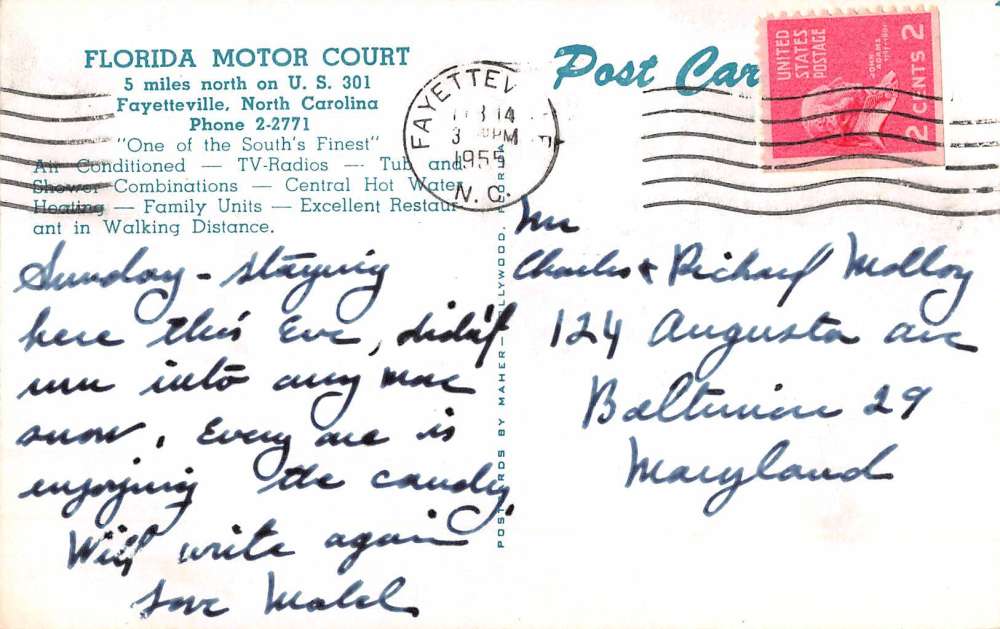 FLORIDA MOTOR COURT
5 miles north on U. S. 301
Fayetteville, North Carolina
Phone 2-2771
"One of the South's Finest"
Air Conditioned — TV-Radios — Tub and
Shower Combinations — Central Hot Water
Heating — Family Units — Excellent Restaur-
ant in Walking Distance.
Sunday - staying
here this Eve, didn't
run into any more
snow. Every one is
enjoying the candy,
Will write again
Love Mabel
POSTCARDS BY MAHER—HOLLYWOOD, FLORIDA
Post Car
FAYETTEV
14
3 PM
1955
N.C.
UNITED
STATES
POSTAGE
JOHN
ADAMS
1797-1801
2 CENTS 2
Mr
Charles & Richard Molloy
124 Augusta ave
Baltimore 29
Maryland